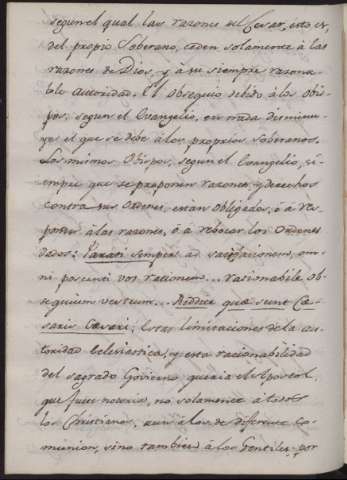 segun el qual las razones del Cesar, esto es,
del propio Soberano, ceden solamente à las
razones de Dios, y à su siempre razona-
ble autoridad. El obsequio debido à los Obis-
pos, segun el Evangelio, en nada disminu-
ye el que se debe à los propios soberanos.
Los mismos Obispos, segun el Evangelio, si-
empre que se proponen razones, y derechos
contra sus Ordenes, estan obligados, ò à res-
ponder à las razones, ò à rebocar los Ordenes
dados: Parati semper ad satisfactionem, om-
ni poscenti vos rationem... Rationabile ob-
sequium vestrum... Reddite quæ sunt Cæ-
saris Cæsari: Estas limitaciones de la au-
toridad Eclesiastica, y esta racionabilidad
del sagrado Govierno queria el Apostol,
que fuese notoria, no solamente à todos
los Christianos, aun à los de diferente Co-
munion, sino tambien à los Gentiles, por